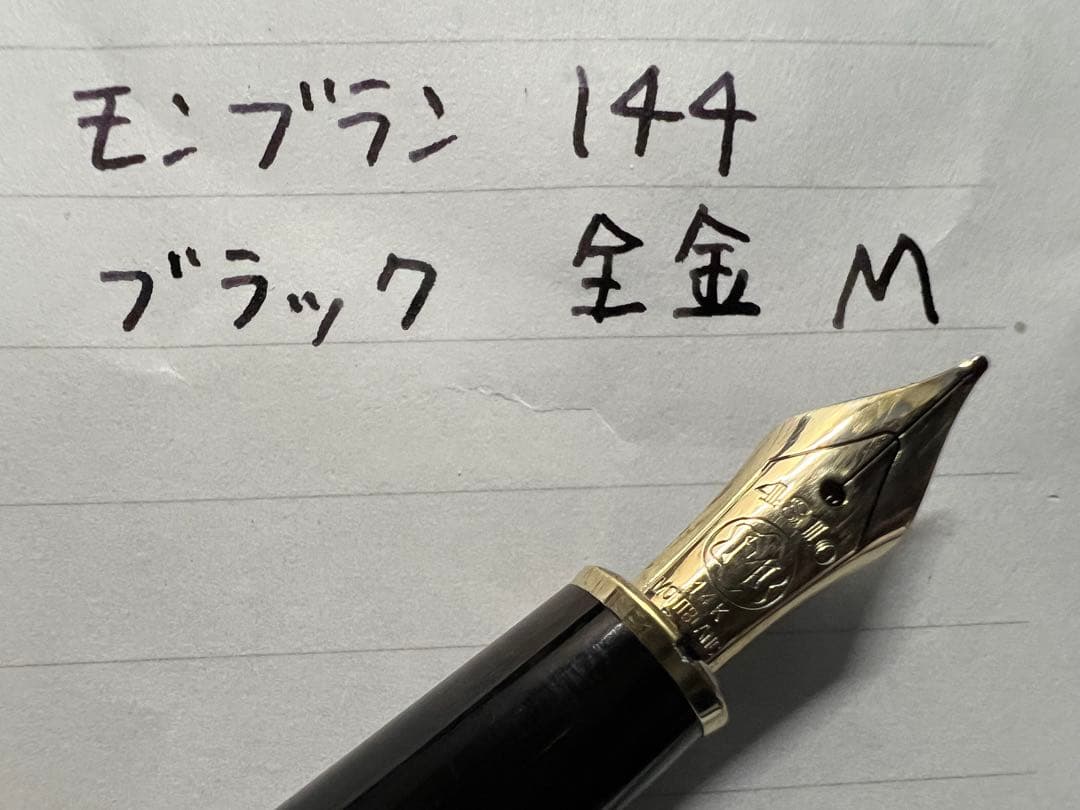 モンブラン 144
ブラック 全金 M
4810
14K
MONTBLANC